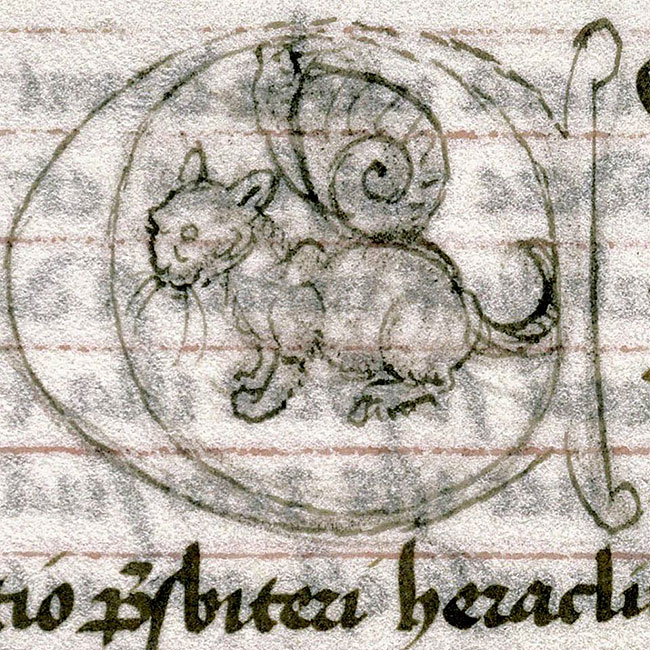 tio p̄sbiteri heracli